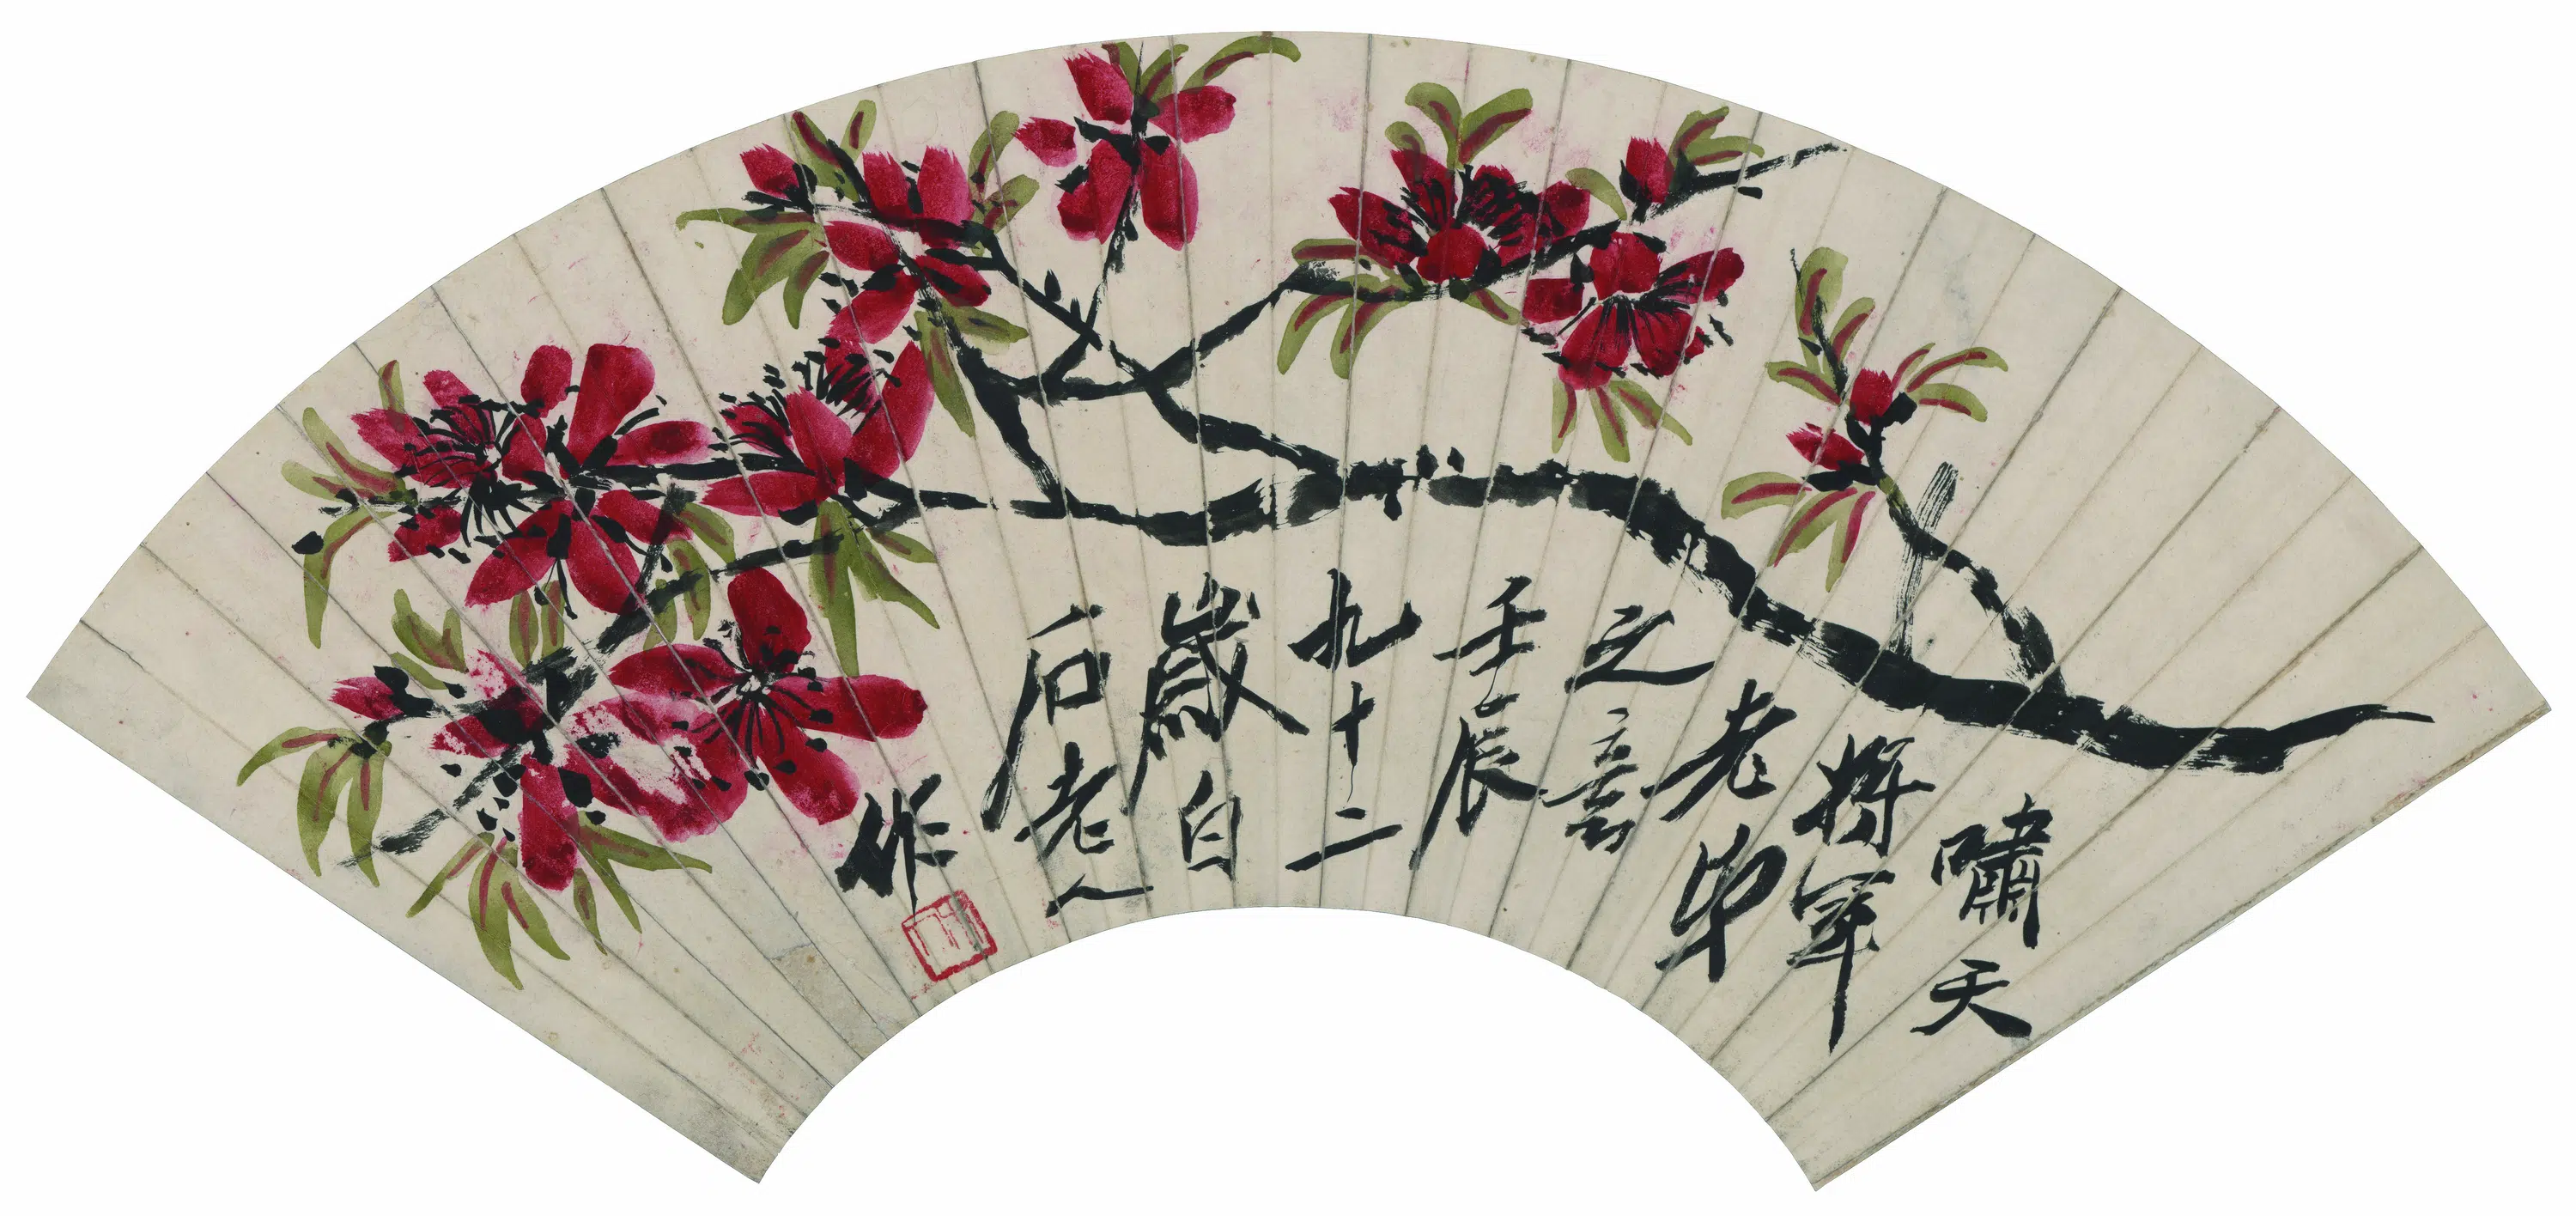 嘯天
將軍
老弟
之喜
壬辰
九十二
歲白
石老人
作